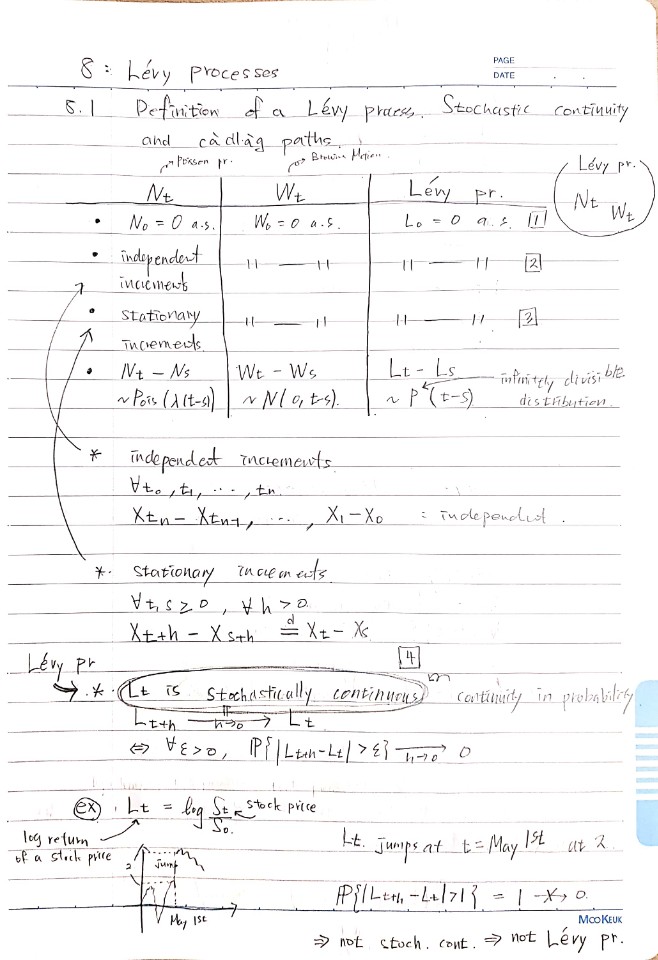 PAGE
DATE
8 : Lévy processes
8.1 Definition of a Lévy process. Stochastic continuity
and càdlàg paths.
Poisson pr. Brownian Motion.
Lévy pr.
Nt Wt
Nt Wt Lévy pr.
• N₀ = 0 a.s. W₀ = 0 a.s. L₀ = 0 a.s. 1
• independent increments 〃 — 〃 〃 — 〃 2
• stationary increments. 〃 — 〃 〃 — 〃 3
• Nt − Ns Wt − Ws Lt − Ls infinitely divisible
~ Pois(λ(t-s)) ~ N(0, t-s). ~ P (t-s) distribution.
* independent increments.
∀t₀, t₁, ..., tn.
Xtn − Xtn-1, ..., X₁ − X₀ : independent.
* stationary increments
∀t, s ≥ 0, ∀h > 0.
Xt+h − Xs+h =ᵈ Xt − Xs
4
Lévy pr
→ * Lt is stochastically continuous continuity in probability
Lt+h —ℙ, h→0→ Lt
⇔ ∀ε>0, ℙ{|Lt+h − Lt| > ε} —h→0→ 0
ex. Lt = log St/S0. stock price
log return
of a stock price
Lt jumps at t = May 1st at 2.
2
jump
May 1st
ℙ{|Lt+h − Lt| > 1} = 1 -X→ 0.
MOOKEUK
⇒ not stoch. cont. ⇒ not Lévy pr.